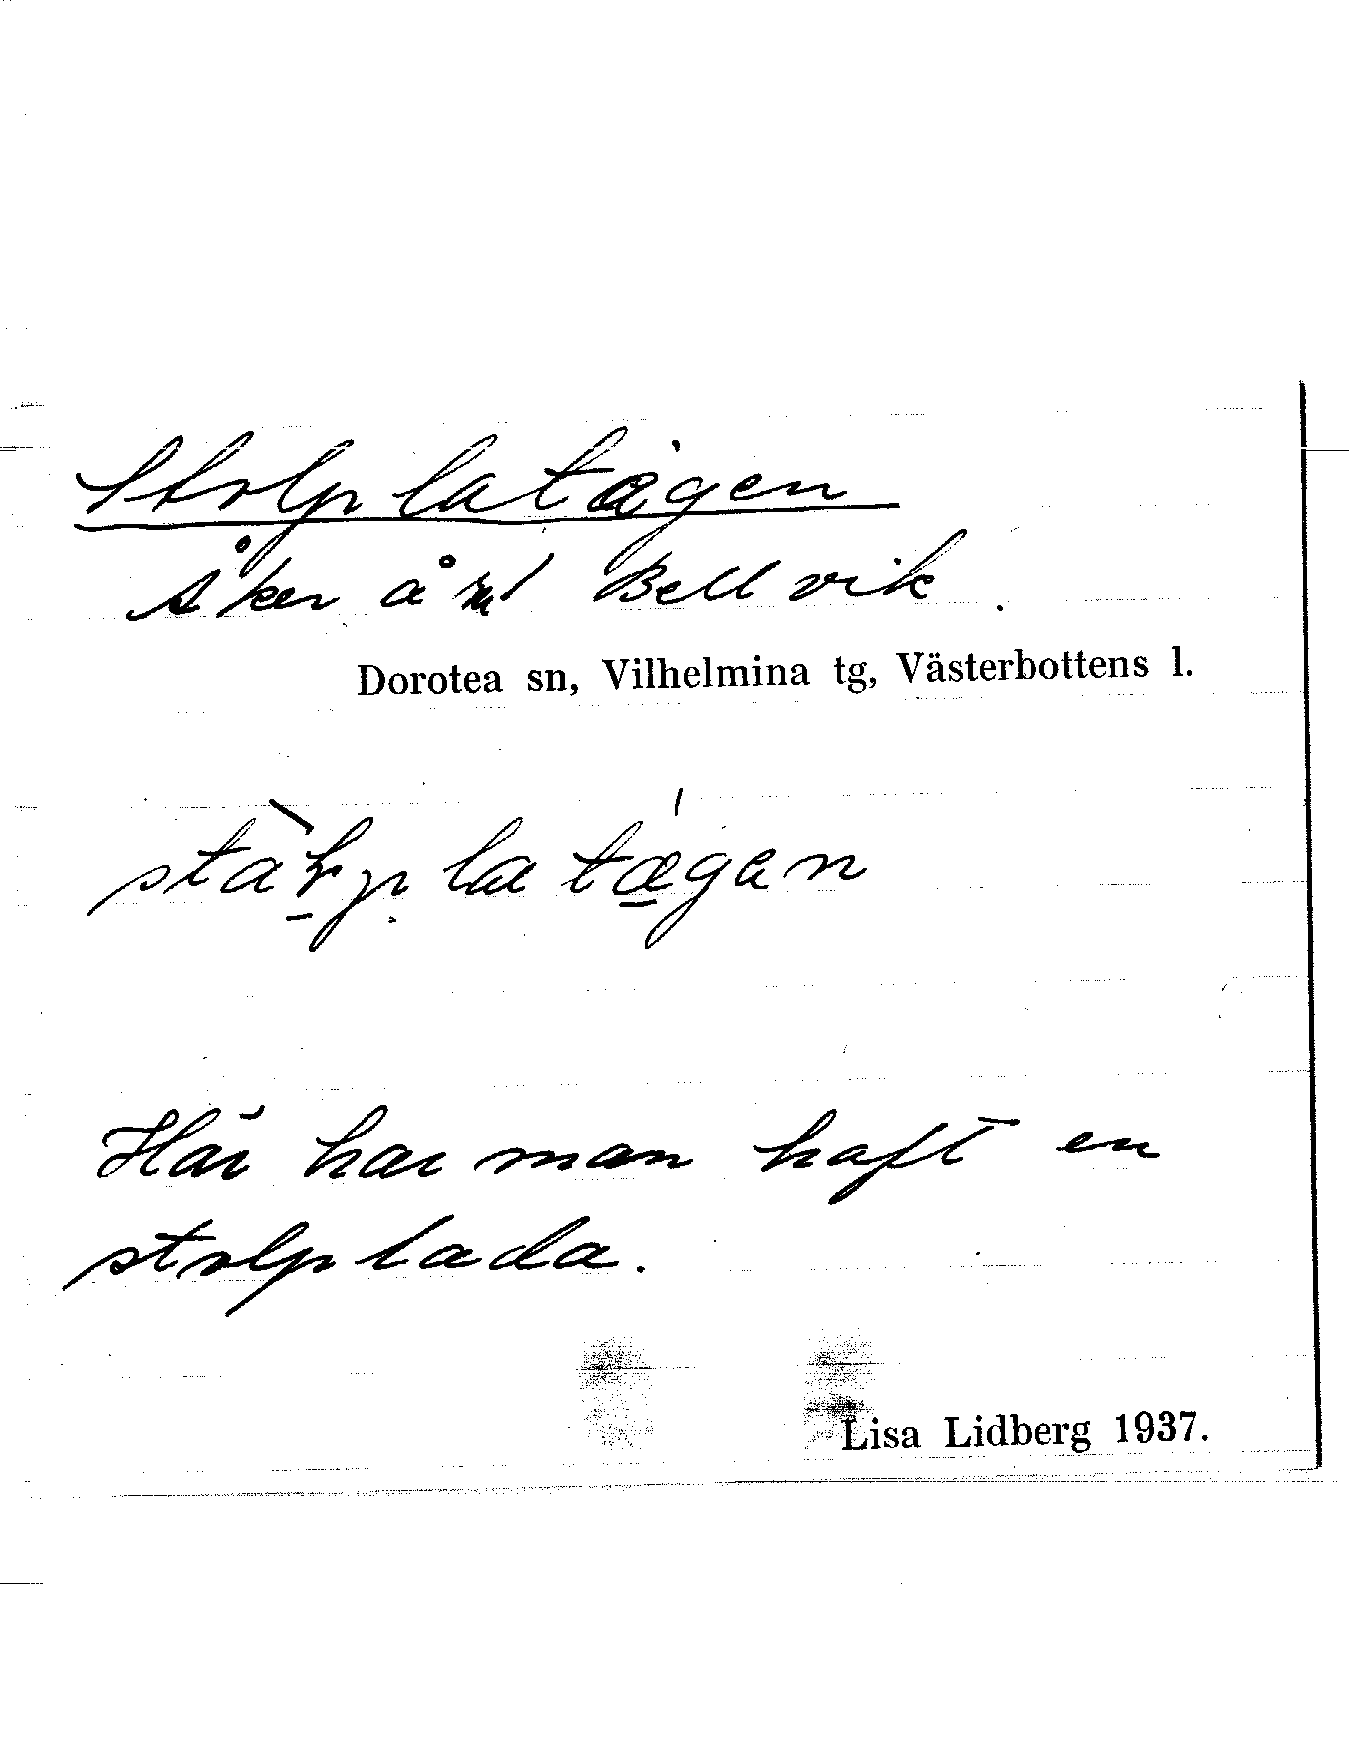 Stolplatägen
Åker å rn1 Bellvik.
Dorotea sn, Vilhelmina tg, Västerbottens l.
Här har man haft en
stolplada.
Lisa Lidberg 1937.